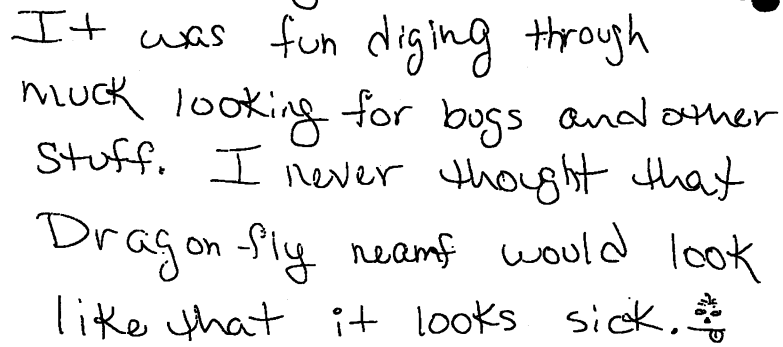 It was fun diging through
muck looking for bugs and other
stuff. I never thought that
Dragon fly neamf would look
like that it looks sick.